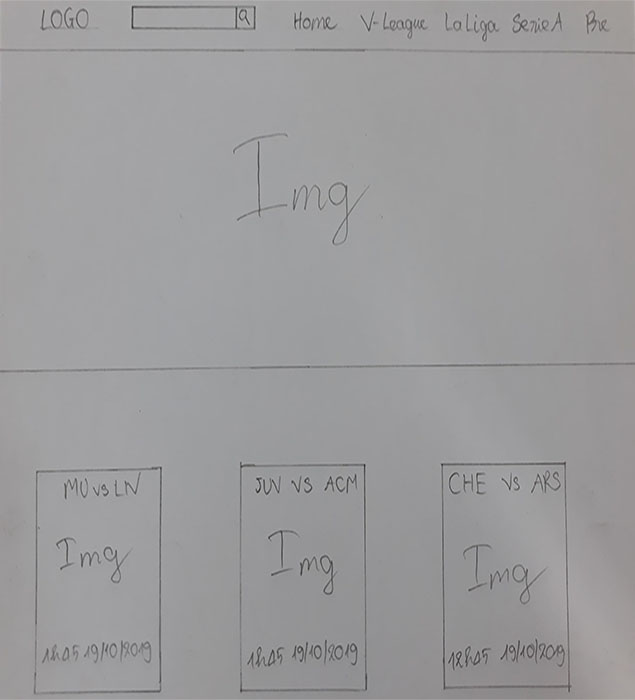 LOGO Home V-League LaLiga SerieA Pre
Img
MU vs LIV
Img
1h05 19/10/2019
JUV VS ACM
Img
1h05 19/10/2019
CHE VS ARS
Img
12h05 19/10/2019